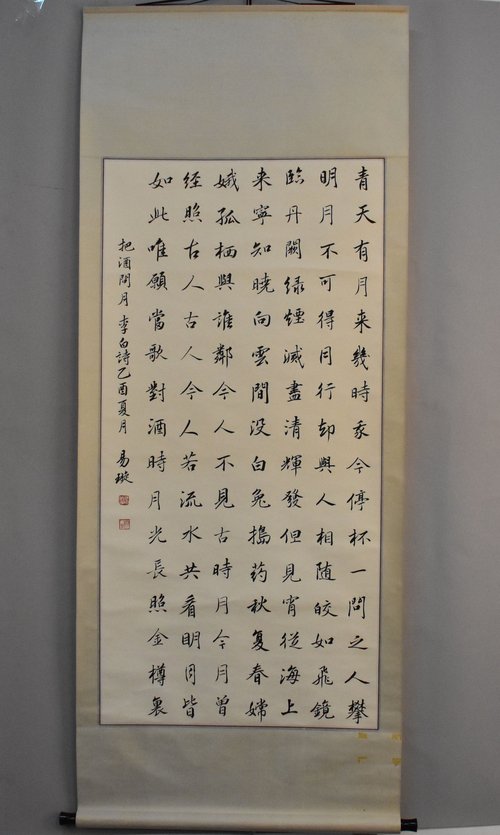 青天有月来幾時我今停杯一問之人攀
明月不可得月行却與人相随皎如飛鏡
臨丹闕绿煙滅盡清輝發但見宵從海上
来寧知曉向雲間没白兔搗药秋复春嫦
娥孤栖與誰鄰今人不見古時月今月曾
经照古人古人今人若流水共看明月皆
如此唯願當歌對酒時月光長照金樽裏
把酒問月 李白詩乙酉夏月 易璇